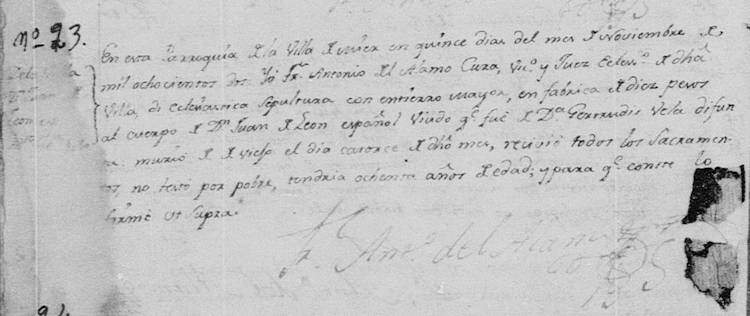 Nº 23.
En esta Parroquia d la Villa d Mier en quince dias del mes d Noviembre d
mil ochocientos dos Yo Fr. Antonio del Alamo Cura, Vic.º y Juez Ecles.º d dha
Villa, di eclesiastica sepultura con entierro mayor, en fabrica d diez pesos
al cuerpo d Dn Juan d Leon español Viudo q.e fué d Da Gertrudis Vela difun
ta. murió d viejo el dia catorce d dho mes, recivió todos los Sacramen
tos no testó por pobre, tendria ochenta años d edad; y para q.e conste lo
firmé ut supra.
Fr. Ant.º del Alamo